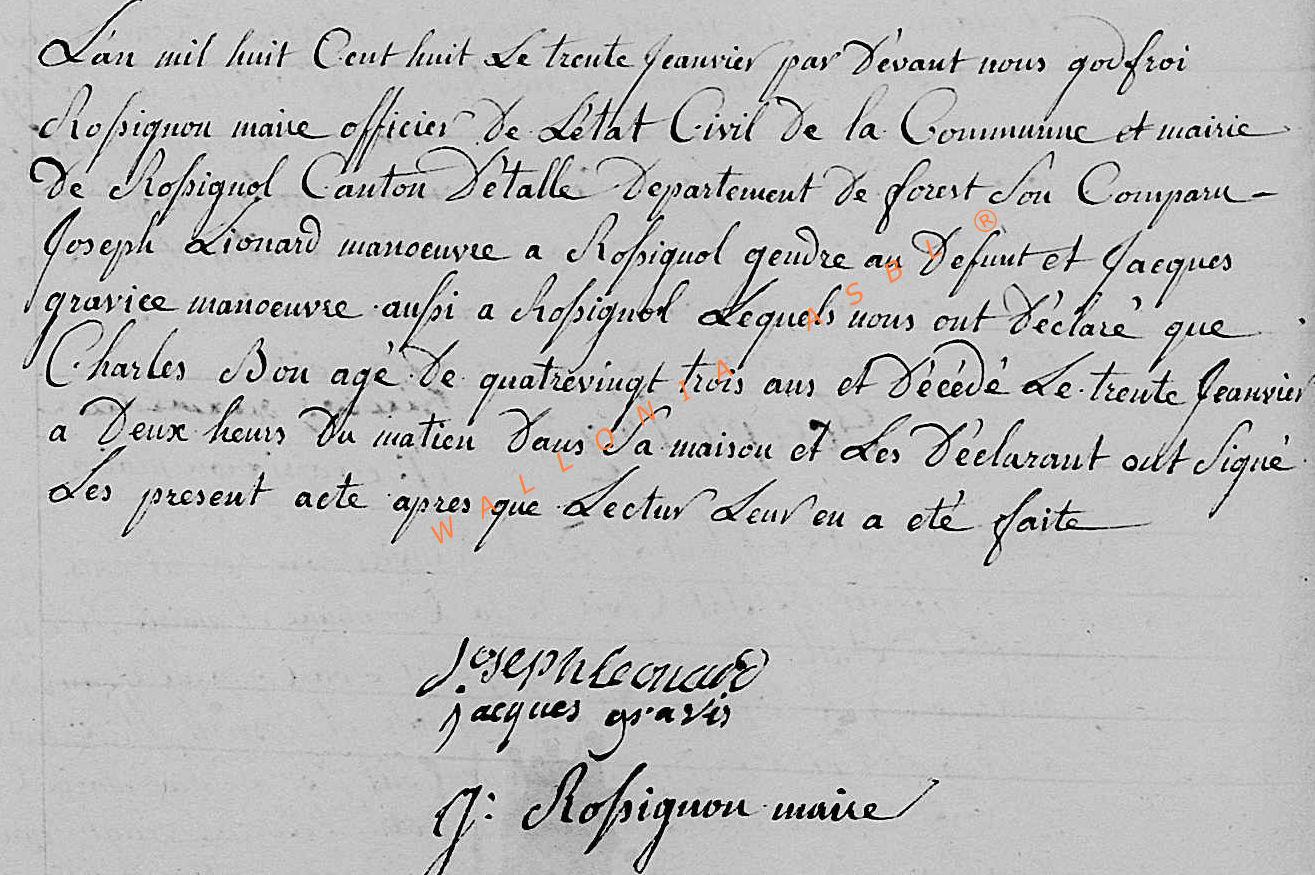 L'an mil huit Cent huit Le trente Jeanvier par Dévant nous godfroi
Rossignon maire officier De L'état Civil De la Communne et mairie
De Rossignol Canton D'étalle Departement De forest Son Comparu -
Joseph Lionard manoeuvre a Rossignol gendre au Defunt et Jacques
gravice manoeuvre aussi a Rossignol Lequels nous ont Déclaré que
Charles Bon agé De quatrevingt trois ans et Décédé Le trente Jeanvier
a Deux heurs Du matien Dans Sa maison et Les Déclarant ont Signé
Les present acte apres que Lectur Leur en a eté faite
WALLONIA ASBL ®
Joseph Leonard
jacques gravis
G: Rossignon maire